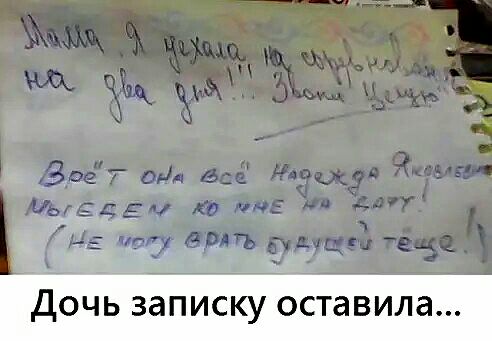 Мама, я уехала на соревнован
на два дня!!! Звони Целую
Врёт она всё Надежда Яковлевн
МЫ ЕДЕМ КО МНЕ НА ДАЧУ!
(НЕ могу ВРАТЬ будущей тёще!)
Дочь записку оставила...